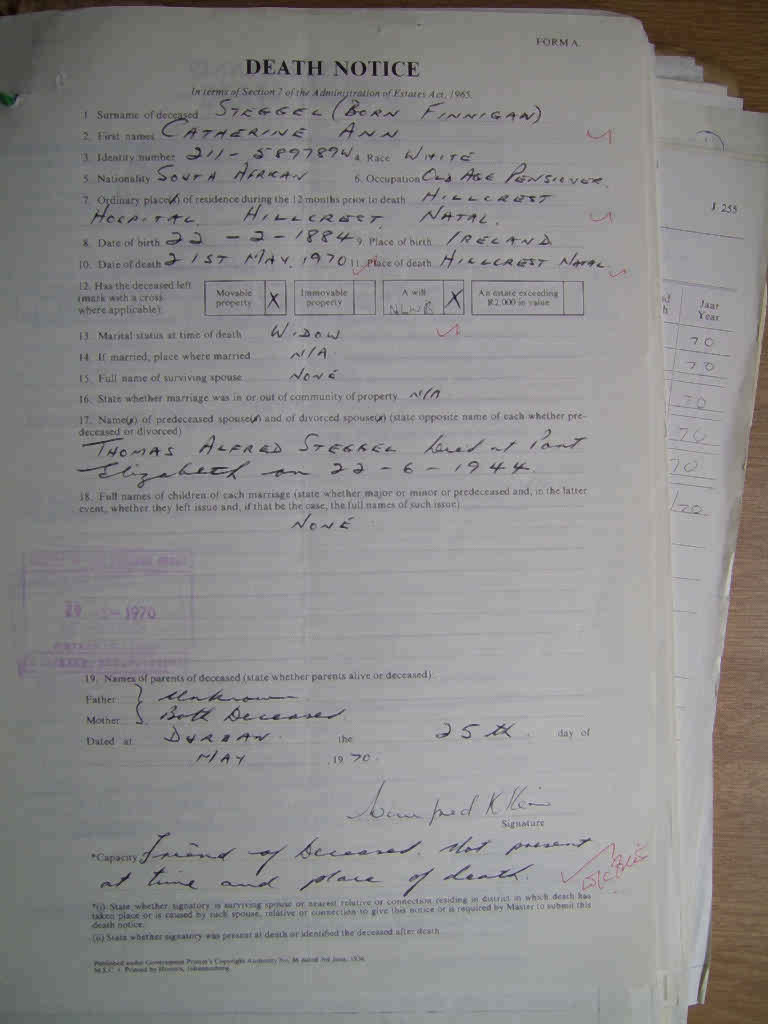 FORM A.
DEATH NOTICE
In terms of Section 7 of the Administration of Estates Act, 1965.
1. Surname of deceased STEGGEL (BORN FINNIGAN)
2. First names CATHERINE ANN
3. Identity number 211-589789W 4. Race WHITE
5. Nationality SOUTH AFRICAN 6. Occupation OLD AGE PENSIONER.
7. Ordinary place(s) of residence during the 12 months prior to death HILLCREST
HOSPITAL, HILLCREST, NATAL.
8. Date of birth 22-2-1884 9. Place of birth IRELAND
10. Date of death 21ST MAY, 1970 11. Place of death HILLCREST NATAL
12. Has the deceased left
(mark with a cross
where applicable):
Movable
property X
Immovable
property
A will X
An estate exceeding
R2 000 in value
13. Marital status at time of death WIDOW
14. If married, place where married N/A.
15. Full name of surviving spouse NONE
16. State whether marriage was in or out of community of property N/A
17. Name(s) of predeceased spouse(s) and of divorced spouse(s) (state opposite name of each whether pre-
deceased or divorced)
THOMAS ALFRED STEGGEL died at Port
Elizabeth on 22-6-1944.
18. Full names of children of each marriage (state whether major or minor or predeceased and, in the latter
event, whether they left issue and, if that be the case, the full names of such issue)
NONE
1970
19. Names of parents of deceased (state whether parents alive or deceased)
Father } Unknown
Mother } Both Deceased
Dated at DURBAN the 25th day of
MAY, 1970.
Signature
*Capacity Friend of Deceased. Not present
at time and place of death.
*(i) State whether signatory is surviving spouse or nearest relative or connection residing in district in which death has
taken place or is caused by such spouse, relative or connection to give this notice or is required by Master to submit this
death notice.
(ii) State whether signatory was present at death or identified the deceased after death
Published under Government Printer's Copyright Authority No.
J 255
Jaar
Year
70
70
70
70
70
/70